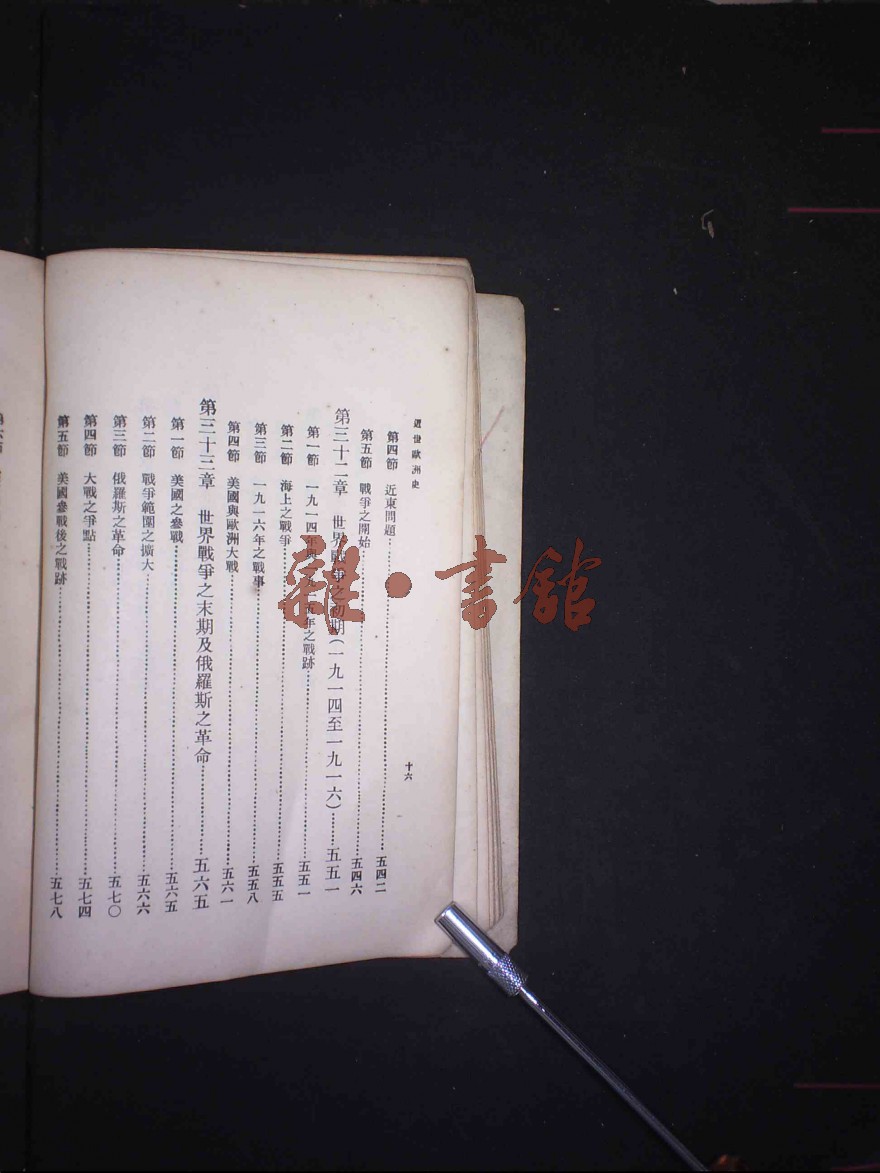 近世歐洲史
十六
第四節 近東問題 五四二
第五節 戰爭之開始 五四六
第三十二章 世界戰爭之初期(一九一四至一九一六) 五五一
第一節 一九一四年與一九一五年之戰跡 五五一
第二節 海上之戰爭 五五五
第三節 一九一六年之戰事 五五八
第四節 美國與歐洲大戰 五六一
第三十三章 世界戰爭之末期及俄羅斯之革命 五六五
第一節 美國之參戰 五六五
第二節 戰爭範圍之擴大 五六六
第三節 俄羅斯之革命 五七〇
第四節 大戰之爭點 五七四
第五節 美國參戰後之戰跡 五七八
雜·書館